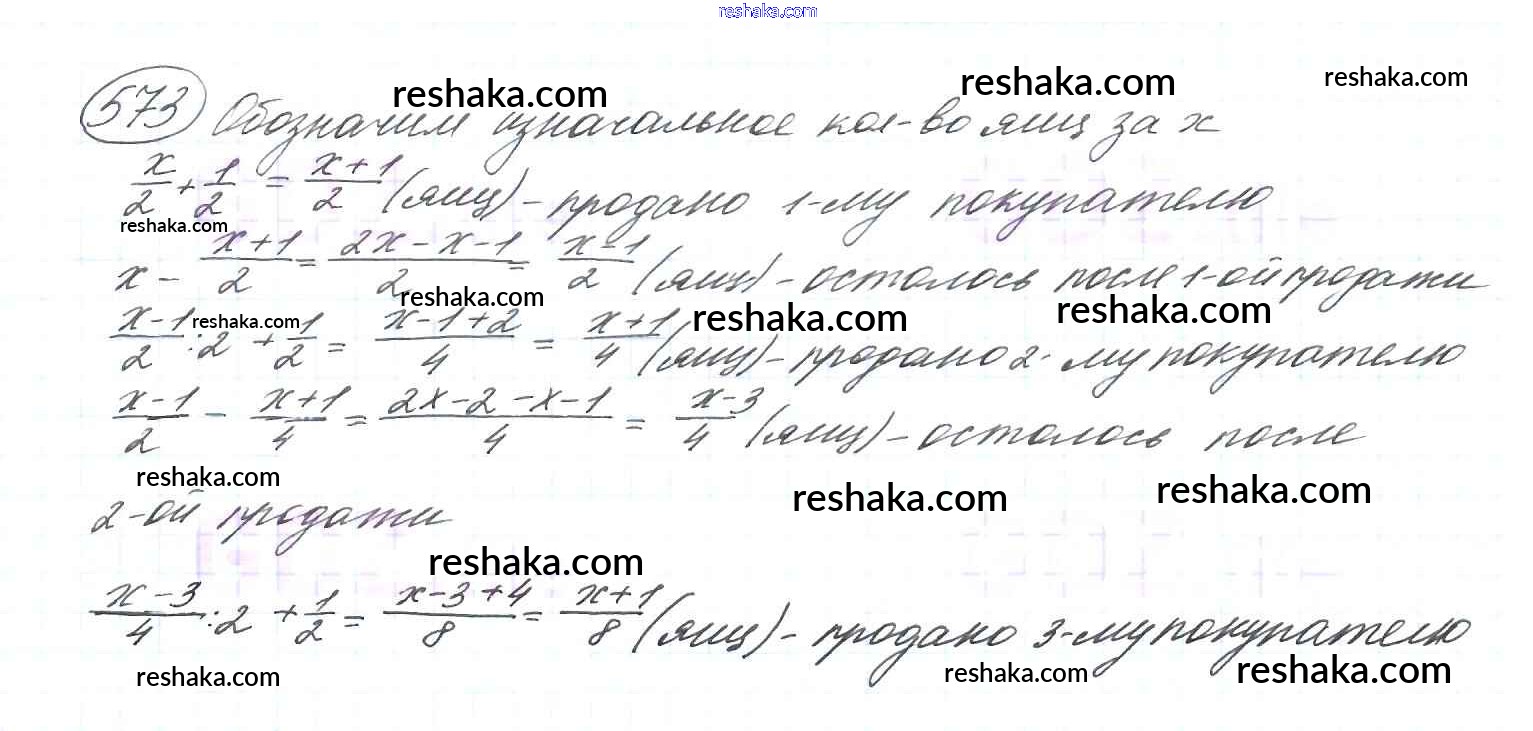 reshaka.com
reshaka.com reshaka.com reshaka.com
573 Обозначим изначальное кол-во яиц за x
x/2 + 1/2 = (x+1)/2 (яиц) - продано 1-му покупателю
reshaka.com
x - (x+1)/2 = (2x-x-1)/2 = (x-1)/2 (яиц) - осталось после 1-ой продажи
reshaka.com reshaka.com reshaka.com reshaka.com
(x-1)/2 :2 + 1/2 = (x-1+2)/4 = (x+1)/4 (яиц) - продано 2-му покупателю
(x-1)/2 - (x+1)/4 = (2x-2-x-1)/4 = (x-3)/4 (яиц) - осталось после
reshaka.com reshaka.com reshaka.com
2-ой продажи
reshaka.com
(x-3)/4 :2 + 1/2 = (x-3+4)/8 = (x+1)/8 (яиц) - продано 3-му покупателю
reshaka.com reshaka.com reshaka.com